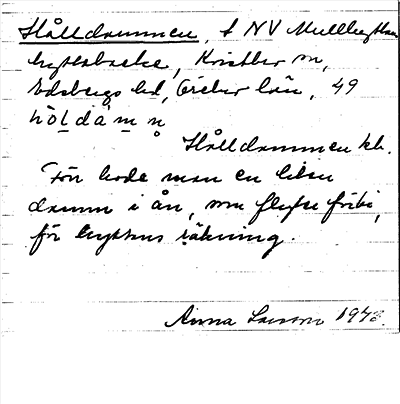 Hålldammen, t NV Mullhyttan
hyttebacke, Kvistbro sn,
Edsbergs hd, Örebro län, 49
hòl̲dàm̲n̥
Hålldammen kb.
Förr hade man en liten
damm i ån, som flyter förbi,
för hyttans räkning.
Anna Larsson 1948.